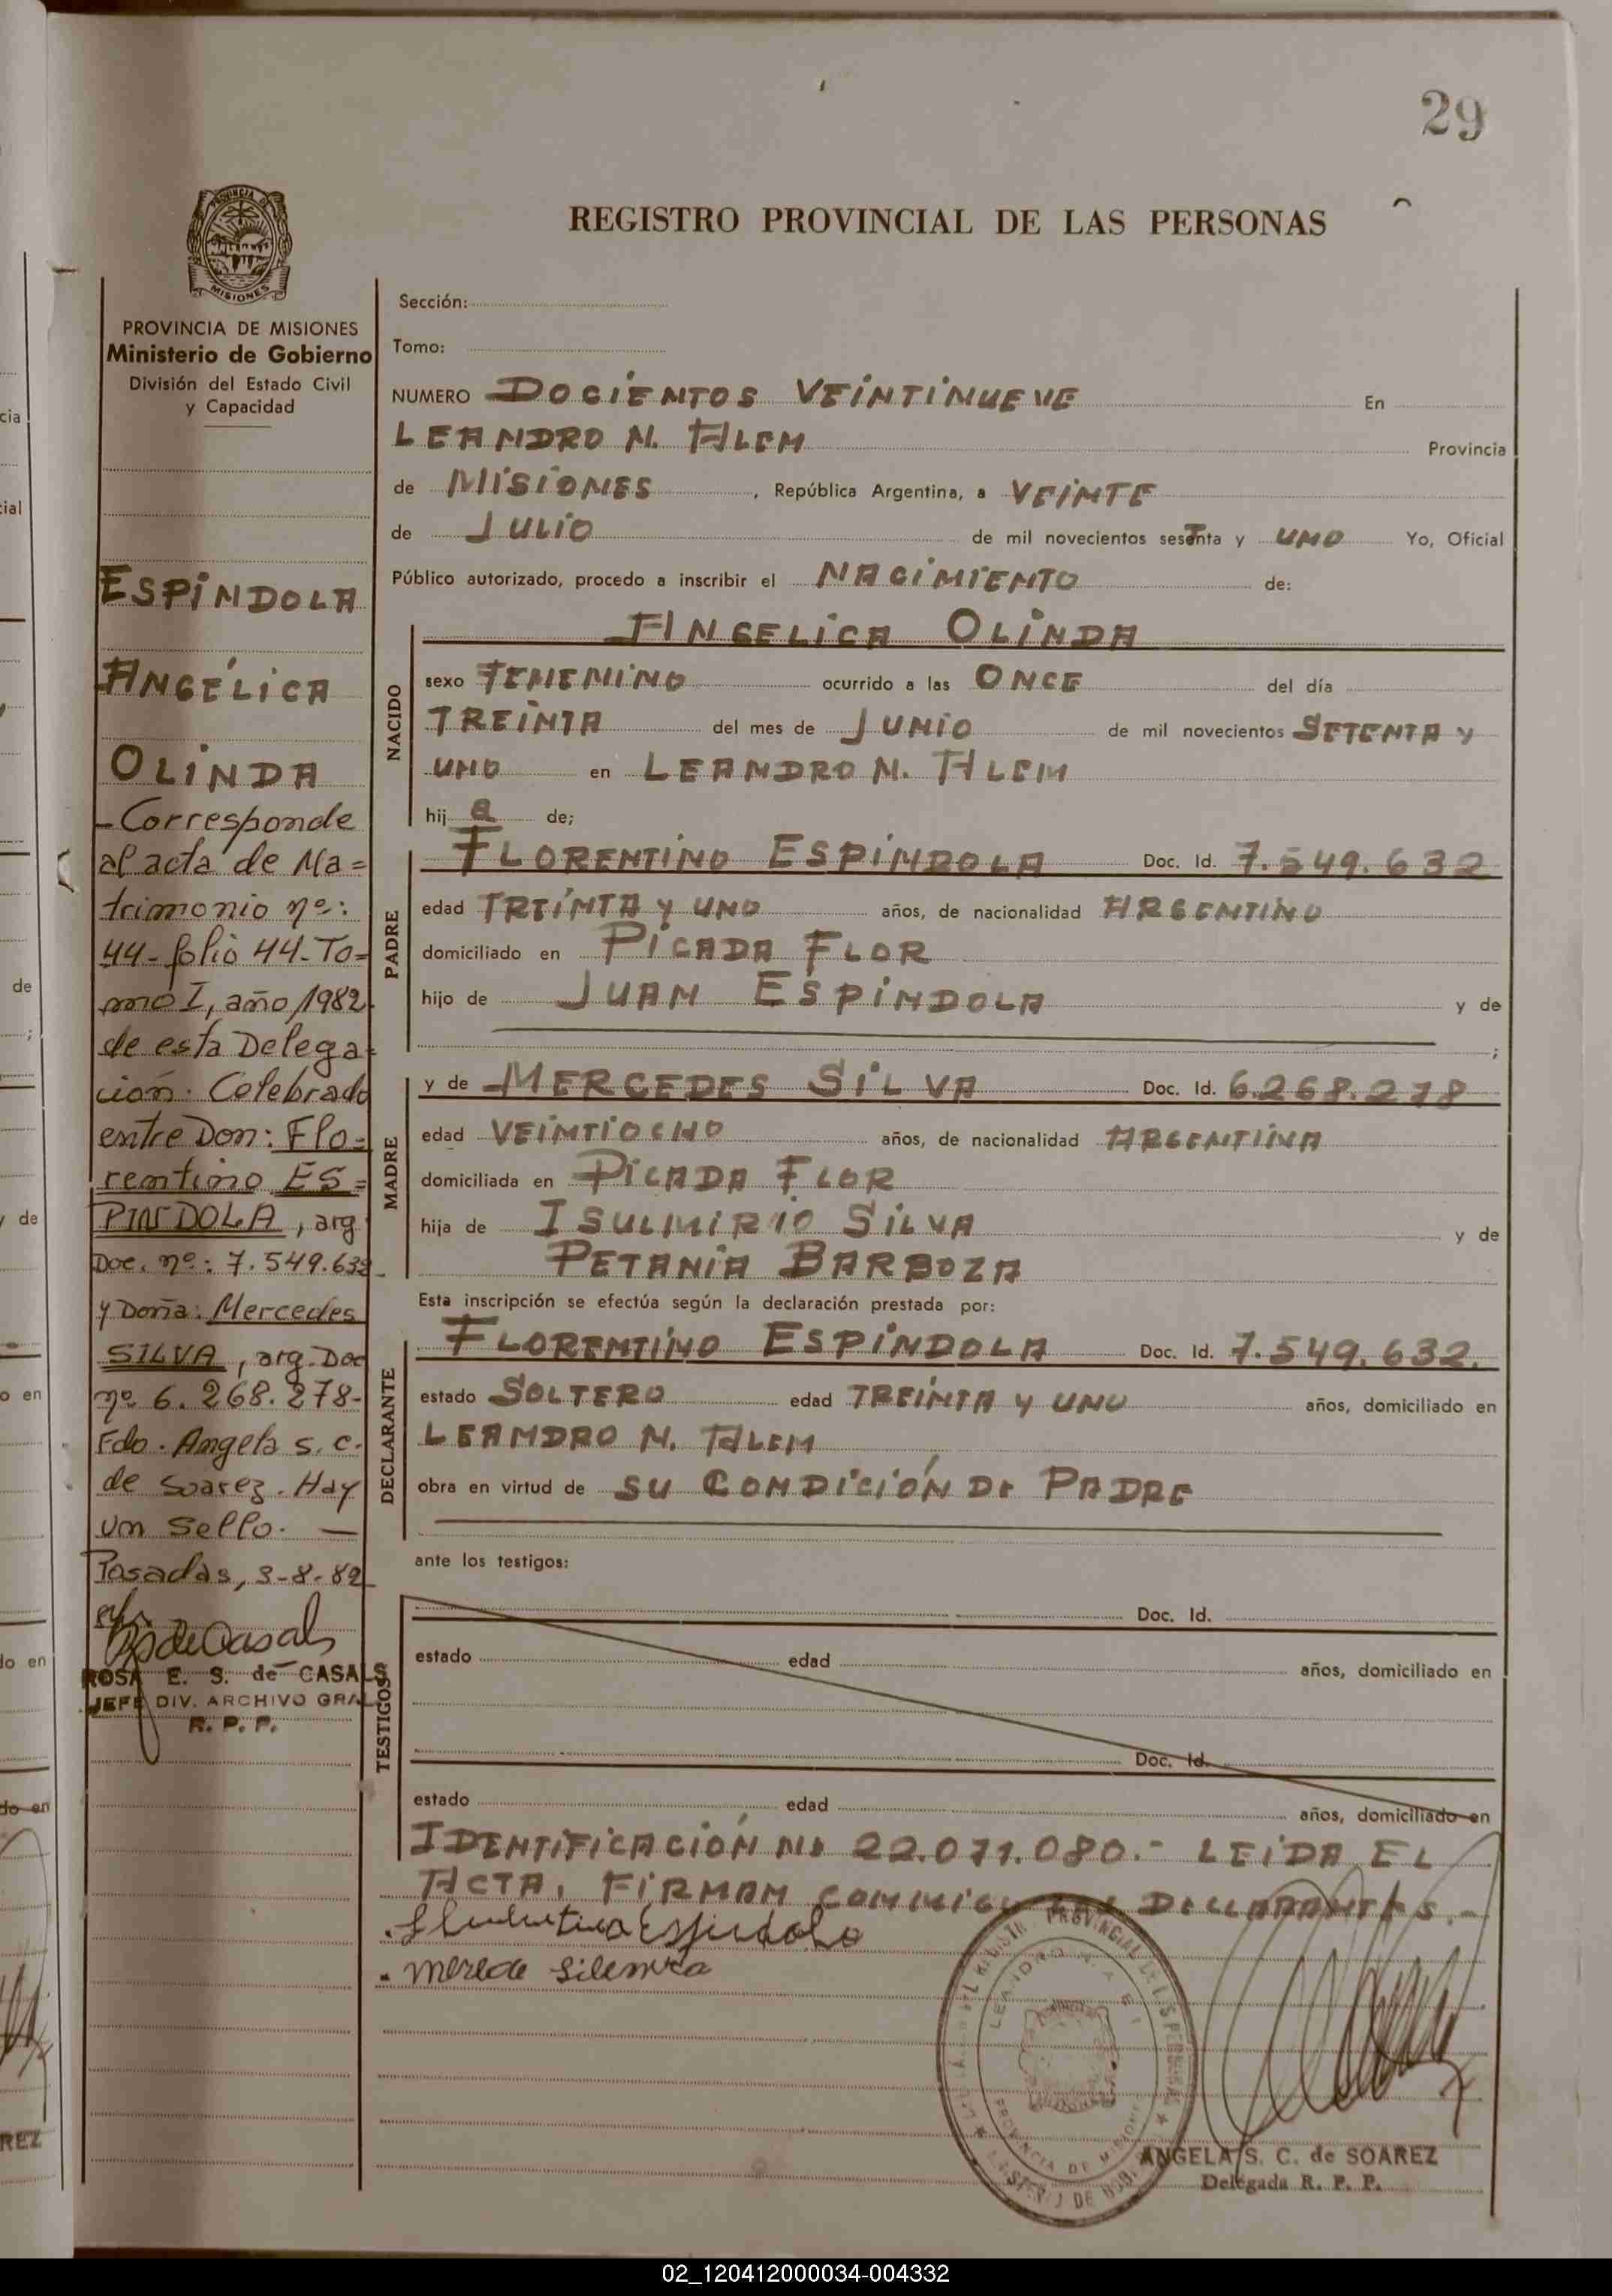 29
REGISTRO PROVINCIAL DE LAS PERSONAS
PROVINCIA DE MISIONES
Ministerio de Gobierno
División del Estado Civil
y Capacidad
ESPINDOLA
ANGÉLICA
OLINDA
- Corresponde
al acta de Ma=
trimonio nº:
44- folio 44- To=
mo I, año 1982.
de esta Delega=
ción. Celebrado
entre Don: Flo=
rentino ES=
PINDOLA, arg
Doc. nº: 7.549.632
y Doña: Mercedes
SILVA, arg. Doc
nº 6.268.278-
Fdo. Angela S. C.
de Soarez. Hay
un Sello. —
Posadas, 3-8-82
ROSA E. S. de CASALS
JEFE DIV. ARCHIVO GRAL
R. P. P.
Sección:
Tomo:
NUMERO DOCIENTOS VEINTINUEVE En
LEANDRO N. ALEM Provincia
de MISIONES, República Argentina, a VEINTE
de JULIO de mil novecientos sesenta y UNO Yo, Oficial
Público autorizado, procedo a inscribir el NACIMIENTO de:
NACIDO
ANGELICA OLINDA
sexo FEMENINO ocurrido a las ONCE del día
TREINTA del mes de JUNIO de mil novecientos SETENTA Y
UNO en LEANDRO N. ALEM
hij a de;
PADRE
FLORENTINO ESPINDOLA Doc. Id. 7.549.632
edad TREINTA Y UNO años, de nacionalidad ARGENTINO
domiciliado en PICADA FLOR
hijo de JUAN ESPINDOLA y de
;
MADRE
y de MERCEDES SILVA Doc. Id. 6.268.278
edad VEINTIOCHO años, de nacionalidad ARGENTINA
domiciliada en PICADA FLOR
hija de ISULMIRIO SILVA y de
PETANIA BARBOZA
Esta inscripción se efectúa según la declaración prestada por:
DECLARANTE
FLORENTINO ESPINDOLA Doc. Id. 7.549.632.
estado SOLTERO edad TREINTA Y UNO años, domiciliado en
LEANDRO N. ALEM
obra en virtud de SU CONDICIÓN DE PADRE
ante los testigos:
TESTIGOS
Doc. Id.
estado edad años, domiciliado en
Doc. Id.
estado edad años, domiciliado en
IDENTIFICACIÓN No 22.071.080.- LEIDA EL
ACTA, FIRMAN CONMIGO LOS DECLARANTES.-
Espindola
ANGELA S. C. de SOAREZ
Delegada R. P. P.
02_120412000034-004332